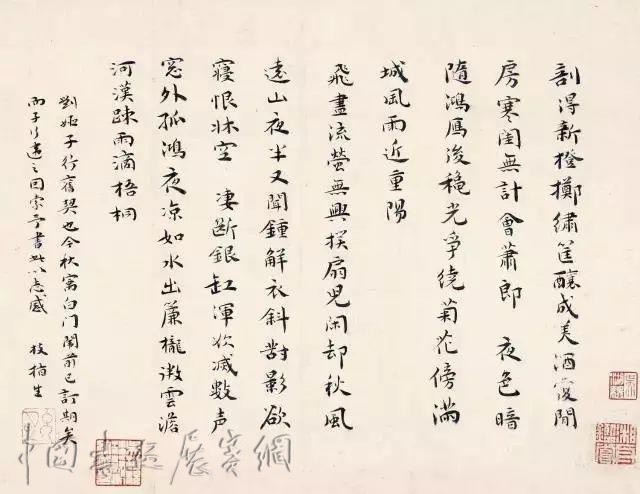 剖得新橙擲繡筐釀成美酒復閒
房寒閨無計會蕭郎　夜色暗
隨鴻雁後穐光爭繞菊花傍滿
城風雨近重陽
飛盡流螢無興撲扇兒閑却秋風
遠山夜半又聞鍾解衣斜對影欲
寢恨牀空　淒斷銀缸渾欲減數声
窓外孤鴻夜涼如水出簾櫳微雲澹
河漢踈雨滴梧桐
劉姬子行舊契也今秋寓白門閏前已訂期矣
而子行遣之因索予書此以志感　枝栖生
中國書
展賽網